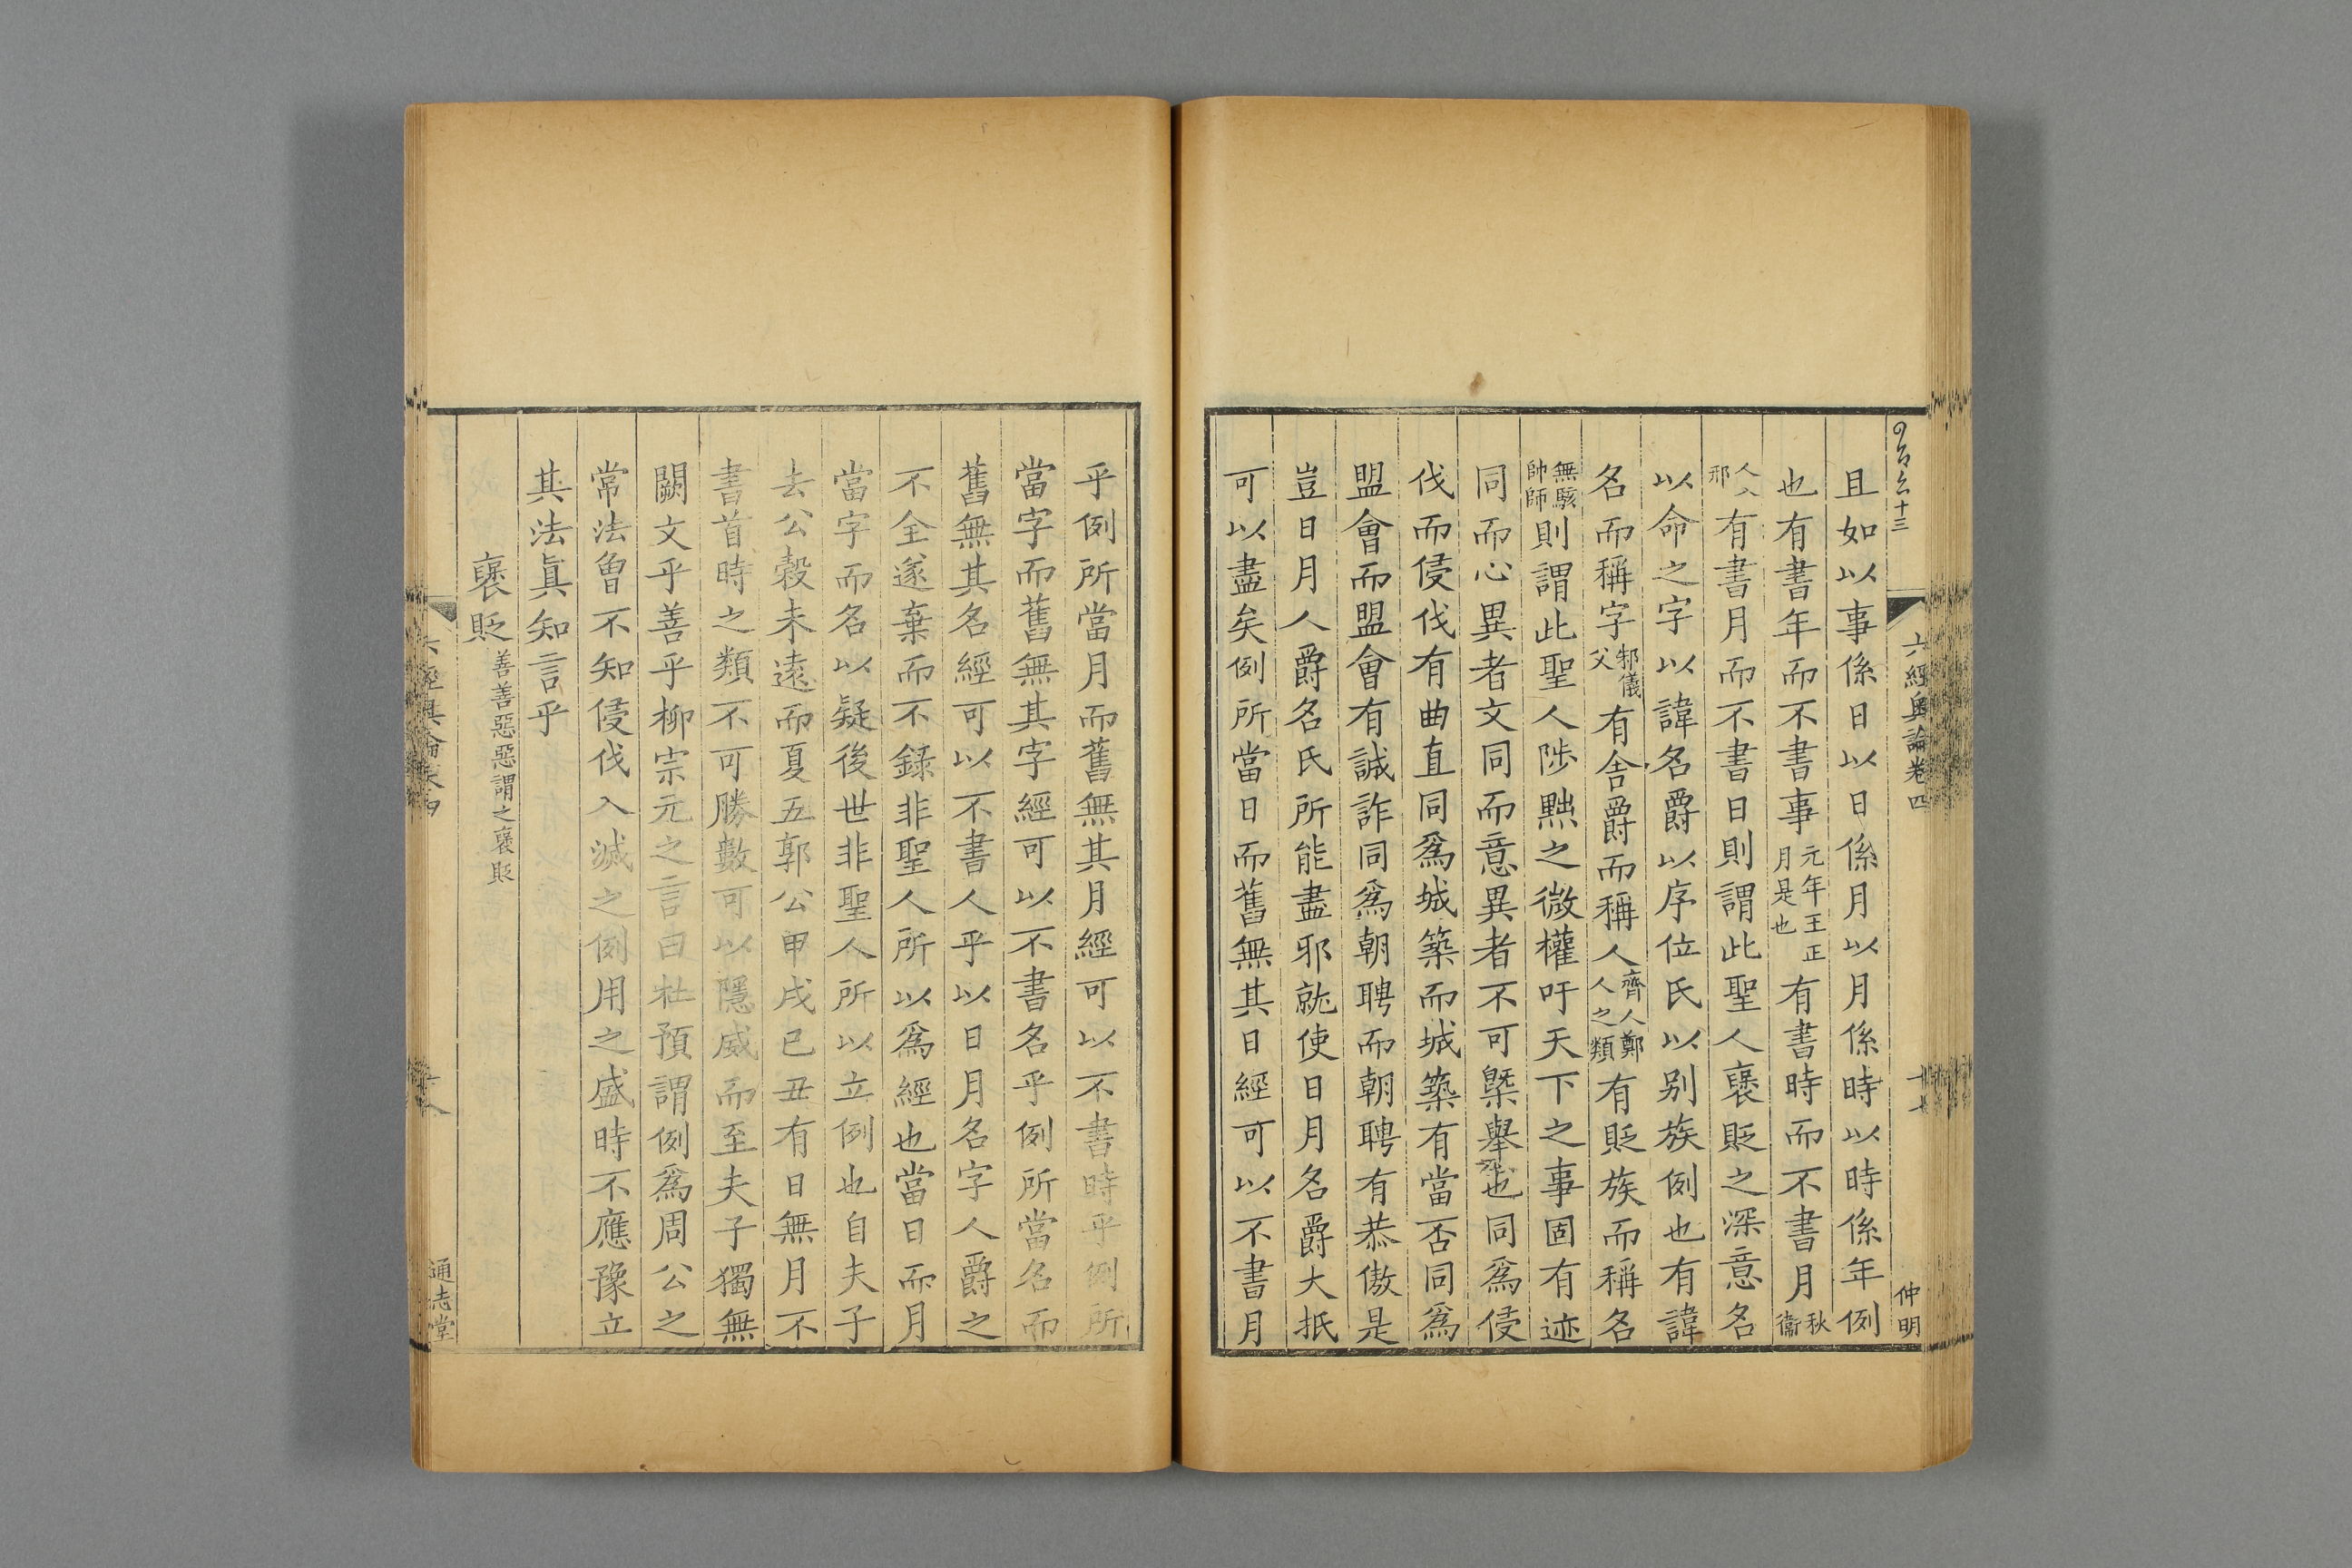 六經奧論卷四
十七
仲明
且如以事係日以日係月以月係時以時係年例
也有書年而不書事元年王正月是也有書時而不書月秋衞
人入邢有書月而不書日則謂此聖人襃貶之深意名
以命之字以諱名爵以序位氏以别族例也有諱
名而稱字邾儀父有舍爵而稱人齊人鄭人之類有貶族而稱名
無駭帥師則謂此聖人陟黜之微權吁天下之事固有迹
同而心異者文同而意異者不可槩舉也同爲侵
伐而侵伐有曲直同爲城築而城築有當否同爲
盟會而盟會有誠詐同爲朝聘而朝聘有恭傲是
豈日月人爵名氏所能盡邪就使日月名爵大抵
可以盡矣例所當日而舊無其日經可以不書月
乎例所當月而舊無其月經可以不書時乎例所
當字而舊無其字經可以不書名乎例所當名而
舊無其名經可以不書人乎以日月名字人爵之
不全遂棄而不錄非聖人所以爲經也當日而月
當字而名以疑後世非聖人所以立例也自夫子
去公穀未遠而夏五郭公甲戌己丑有日無月不
書首時之類不可勝數可以隱威而至夫子獨無
闕文乎善乎柳宗元之言曰杜預謂例爲周公之
常法曾不知侵伐入滅之例用之盛時不應豫立
其法眞知言乎
襃貶善善惡惡謂之襃貶
六經奧論卷四
十八
通志堂